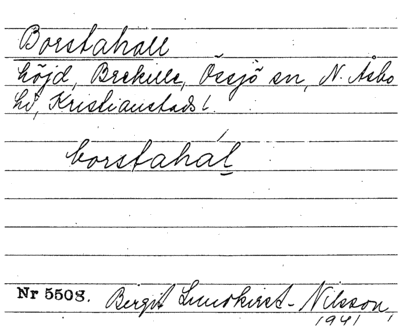 Borstahall
höjd, Brekille, Össjö sn, N. Åsbo
hd, Kristianstads l.
borstahál
Nr 5508. Birgit Lundkvist-Nilsson,
1941